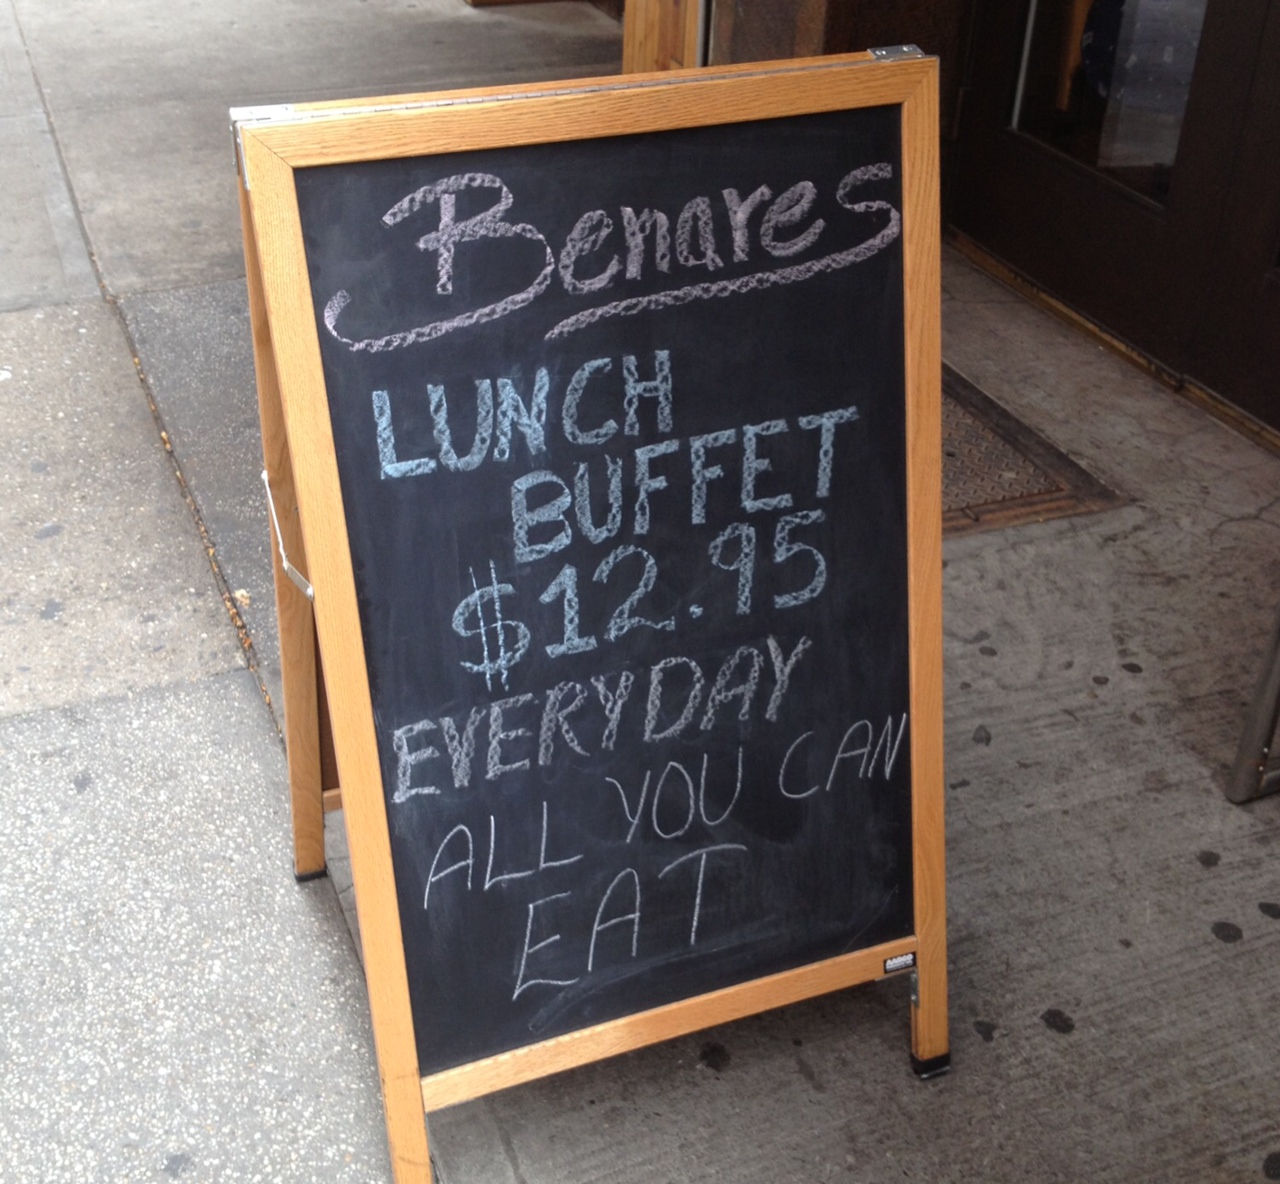 Benares
LUNCH
BUFFET
$12.95
EVERYDAY
ALL YOU CAN
EAT
AARCO